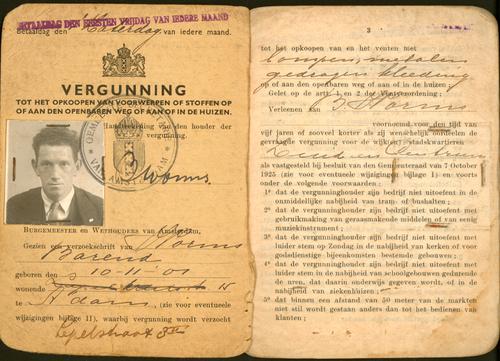 BETAALDAG DEN EERSTEN VRIJDAG VAN IEDERE MAAND
Betaaldag den Zaterdag van iedere maand.
VERGUNNING
TOT HET OPKOOPEN VAN VOORWERPEN OF STOFFEN OP
OF AAN DEN OPENBAREN WEG OF AAN OF IN DE HUIZEN.
Handteekening van den houder der
vergunning.
B Worms.
BURGEMEESTER en WETHOUDERS van Amsterdam,
Gezien een verzoekschrift van Worms
Barend
geboren den 10.11.01
wonende
A'dam, (zie voor eventueele
wijzigingen bijlage II), waarbij vergunning wordt verzocht
3
tot het opkoopen van en het venten met
lompen, metalen
gedragen kleeding
op of aan den openbaren weg of aan of in de huizen;
Gelet op de artt. 1 en 2 der Ventverordening;
Verleenen aan B. Worms
voornoemd voor den tijd van
vijf jaren of zooveel korter als zij wenschelijk oordeelen de
gevraagde vergunning voor de wijk(en) stadskwartieren
Zuid en Centrum
als vastgesteld bij besluit van den Gemeenteraad van 7 October
1925 (zie voor eventueele wijzigingen bijlage 1) en voorts
onder de volgende voorwaarden:
1° dat de vergunninghouder zijn bedrijf niet uitoefent in de
onmiddellijke nabijheid van tram- of bushalten;
2° dat de vergunninghouder zijn bedrijf niet uitoefent met
gebruikmaking van geraasmakende middelen of van eenig
muziekinstrument;
3° dat de vergunninghouder zijn bedrijf niet uitoefent met
luider stem op Zondag in de nabijheid van kerken of voor
godsdienstige bijeenkomsten bestemde gebouwen;
4° dat de vergunninghouder zijn bedrijf niet uitoefent met
luider stem in de nabijheid van schoolgebouwen gedurende
de uren, dat daarin onderwijs gegeven wordt, of in de
nabijheid van ziekenhuizen;
5° dat binnen een afstand van 50 meter van de markten
niet stil wordt gestaan anders dan tot het bedienen van
klanten;